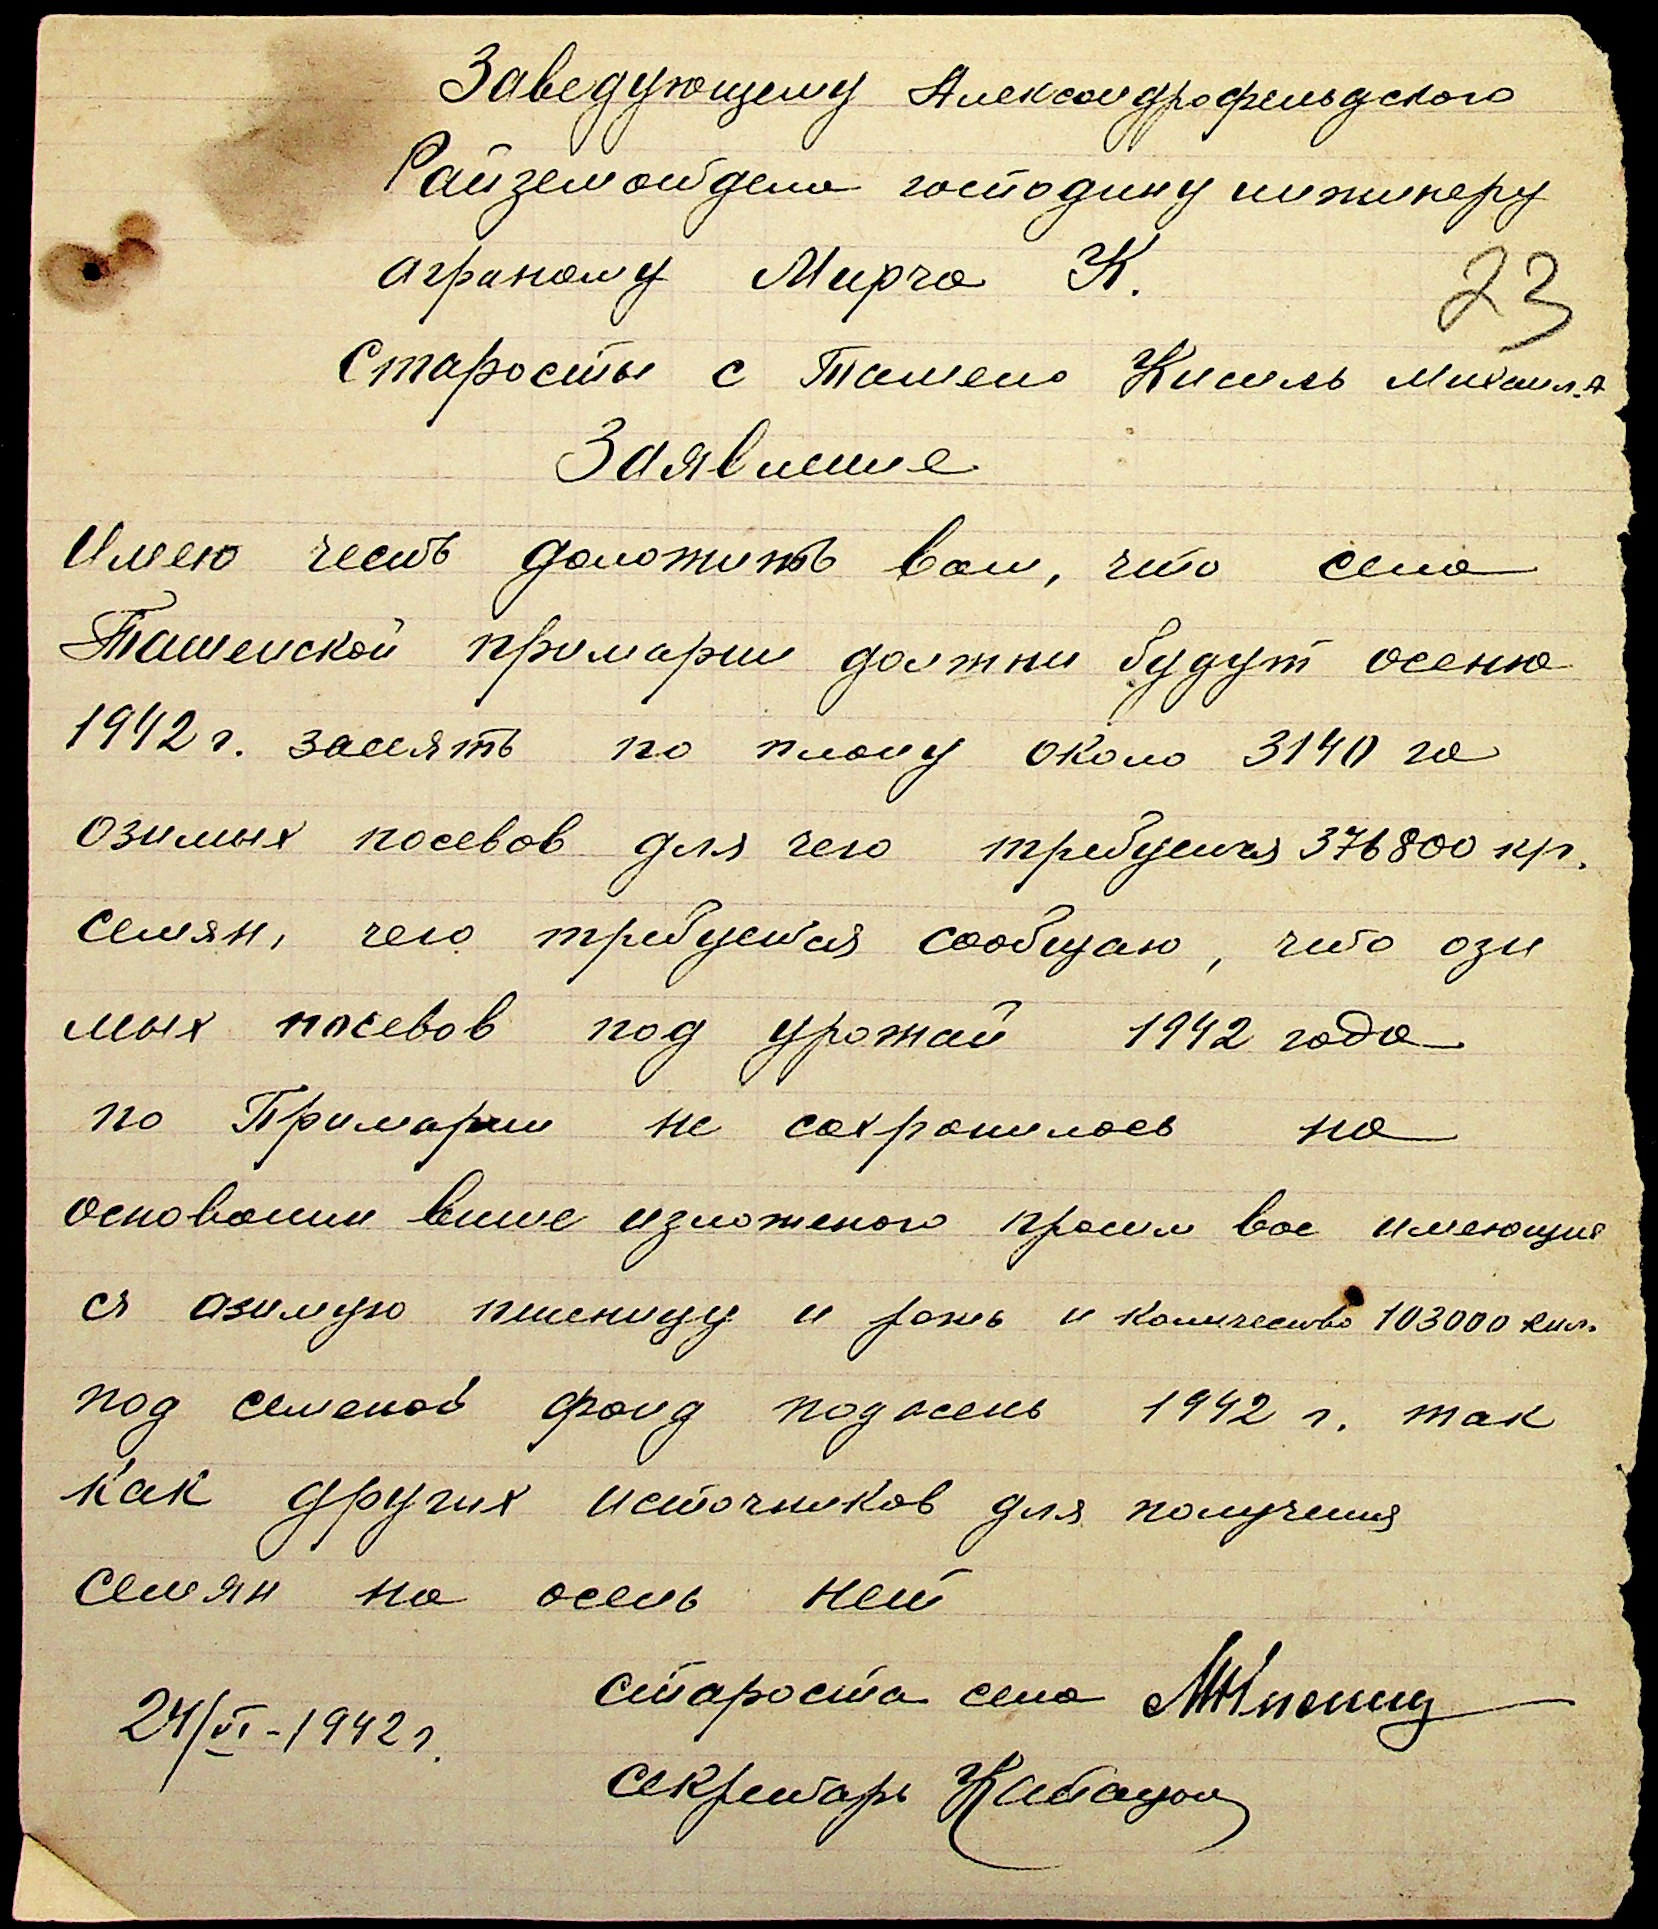 Заведующему Александрофельдского
Райземотдела господину инжинеру
аграному Мирча К.
23
Старосты с Ташено Кисиль Михаил. А
Заявление
Имею честь доложить вам, что села
Ташенской примарии должни будут осеню
1942 г. засеять по плану около 3140 га
озимых посевов для чего требуется 376800 кгр.
семян, чего требуется сообщаю, что ози
мых посевов под урожай 1942 года
по Примарии не сохранилось на
основании више изложеного просим вас имеющие
ся азимую пшеницу и рожь и количество 103000 кил.
под семеной фонд под осень 1942 г. так
как других источников для получения
семян на осень нет
староста села
24/VI-1942 г.
секретарь